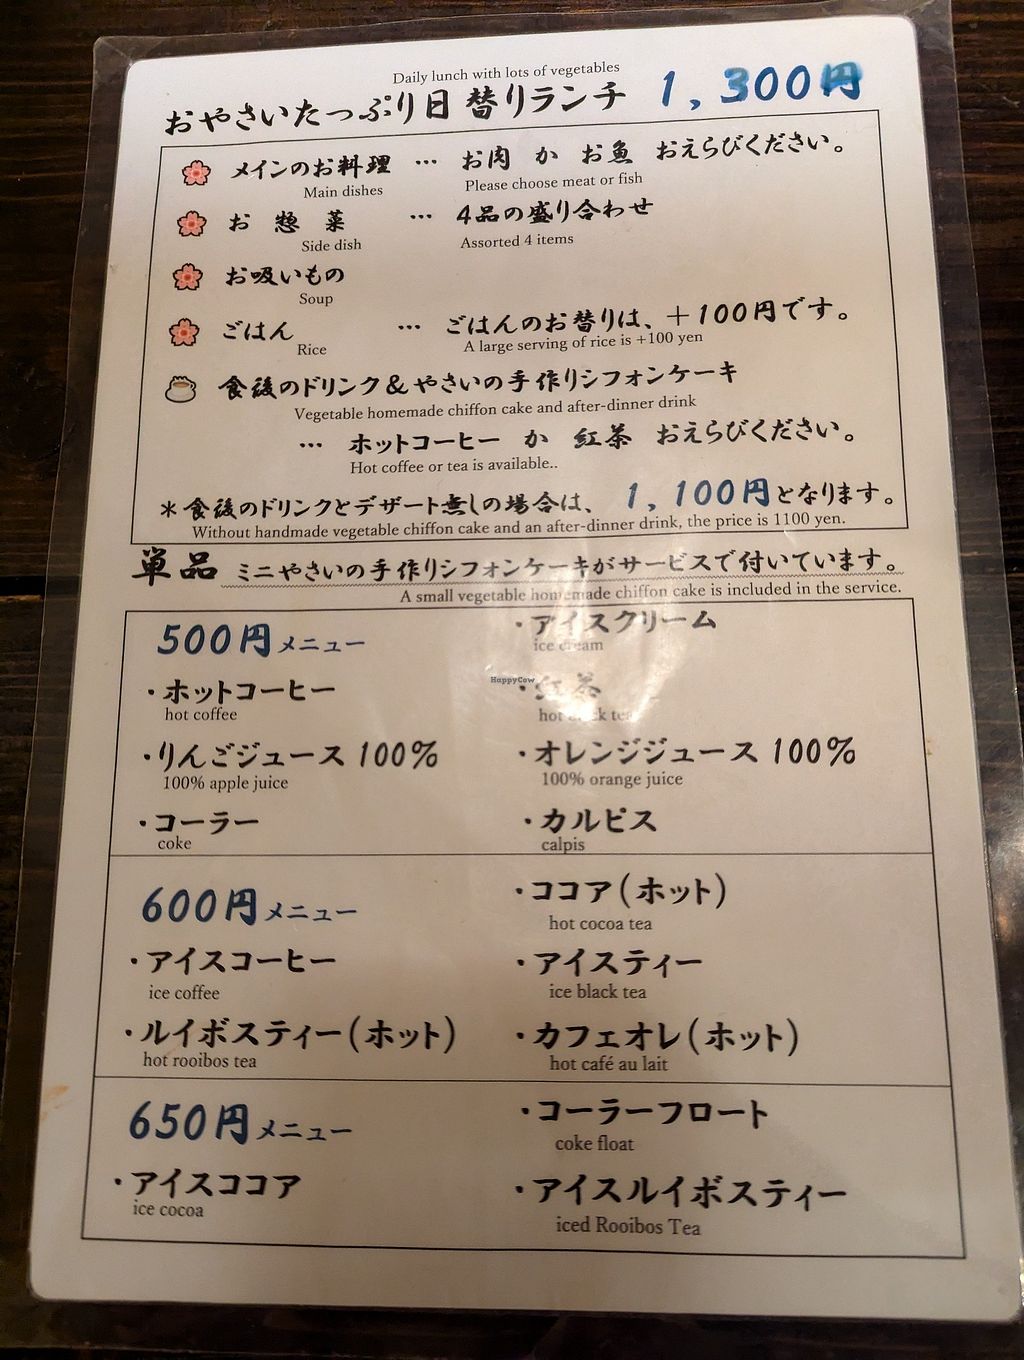 Daily lunch with lots of vegetables
おやさいたっぷり日替りランチ 1,300円
メインのお料理 … お肉 か お魚 おえらびください。
Main dishes Please choose meat or fish
お惣菜 … 4品の盛り合わせ
Side dish Assorted 4 items
お吸いもの
Soup
ごはん … ごはんのお替りは、+100円です。
Rice A large serving of rice is +100 yen
食後のドリンク&やさいの手作りシフォンケーキ
Vegetable homemade chiffon cake and after-dinner drink
… ホットコーヒー か 紅茶 おえらびください。
Hot coffee or tea is available..
*食後のドリンクとデザート無しの場合は、 1,100円となります。
Without handmade vegetable chiffon cake and an after-dinner drink, the price is 1100 yen.
単品 ミニやさいの手作りシフォンケーキがサービスで付いています。
A small vegetable homemade chiffon cake is included in the service.
500円メニュー
・アイスクリーム
ice cream
・ホットコーヒー
hot coffee
・紅茶
hot black tea
HappyCow
・りんごジュース 100%
100% apple juice
・オレンジジュース 100%
100% orange juice
・コーラー
coke
・カルピス
calpis
600円メニュー
・ココア(ホット)
hot cocoa tea
・アイスコーヒー
ice coffee
・アイスティー
ice black tea
・ルイボスティー(ホット)
hot rooibos tea
・カフェオレ(ホット)
hot café au lait
650円メニュー
・コーラーフロート
coke float
・アイスココア
ice cocoa
・アイスルイボスティー
iced Rooibos Tea